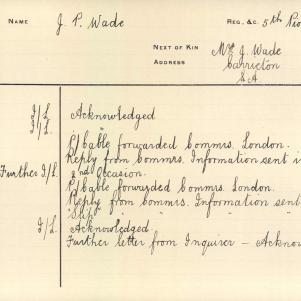 NAME J. P. Wade REG., &C. 5th Pio
NEXT OF KIN Mr J. Wade
ADDRESS Carrieton
S.A.
I/L. Acknowledged
I/L. "
P/Cable forwarded Commrs. London.
Reply from Commrs. Information sent i
Further I/L. 2nd Occasion.
P/Cable forwarded Commrs. London.
Reply from Commrs. Information sent
"Slip" " " "
I/L. Acknowledged.
Further letter from Inquirer - Acknow